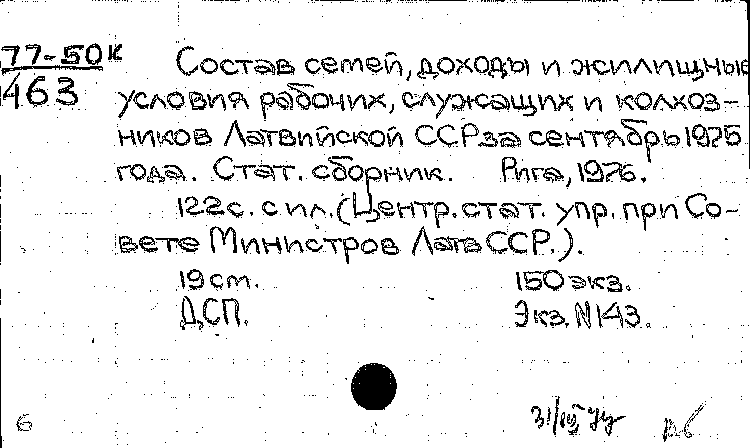 77-50к
463
Состав семей, доходы и жилищные
условия рабочих, служащих и колхоз-
ников Латвийской ССР за сентябрь 1975
года. Стат. сборник. Рига, 1976.
122с. с ил. (Центр. стат. упр. при Со-
вете Министров Латв ССР.).
19 см. 150 экз.
ДСП. Экз. №143.
6